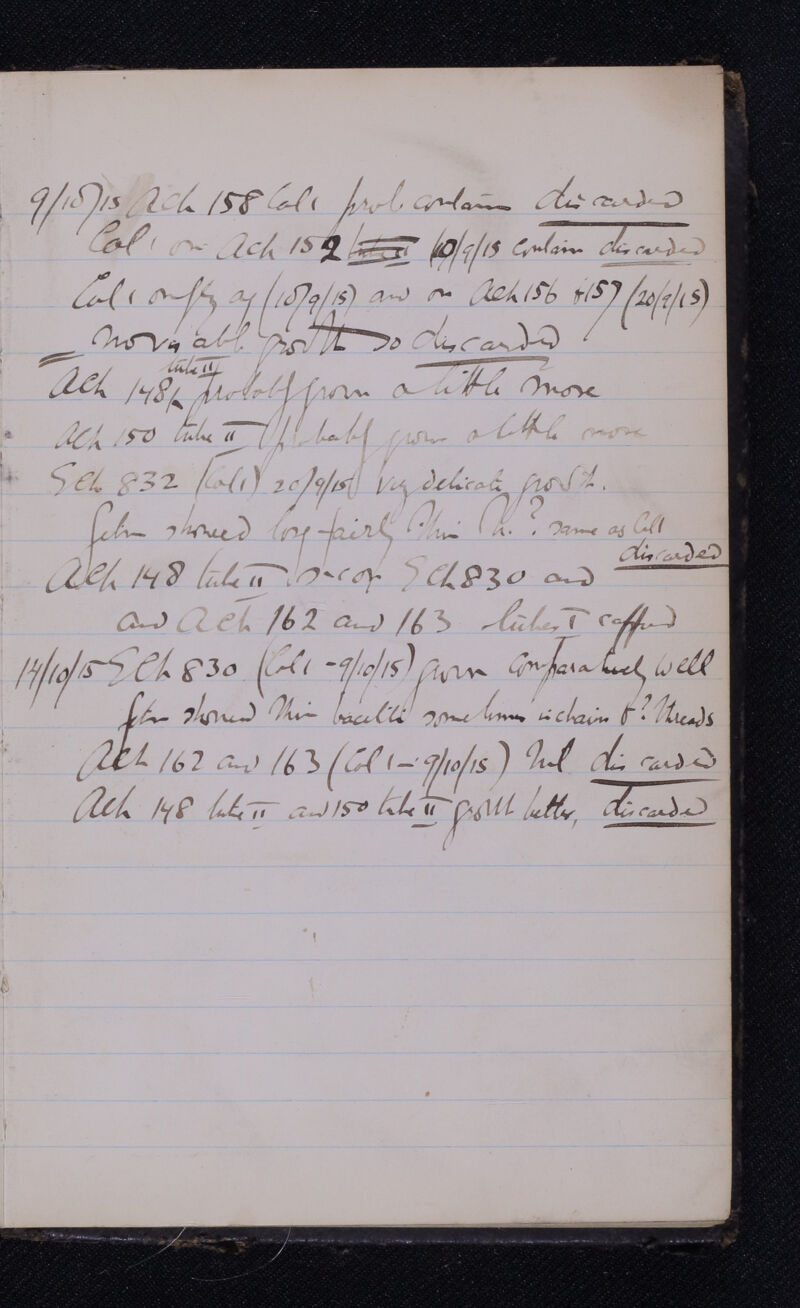 9/10/15 Ach 158 Col 1 prob contam discarded
Col 1 on Ach 152 10/9/15 contam discarded
Col 1 on (10/9/15) and on Ach 156 + 157 (20/9/15)
= no visable growth so discarded
tube II
Ach 148 probably grown a little more
Ach 150 tube II probably grown a little more
Sch 832 (Col 1) 20/9/15 very delicate growth.
showed long fairly thin ? same as Col 1
discarded
Ach 148 tube II Sch 830 and
and Ach 162 and 163 tubes I capped
14/10/15 Sch 830 (Col 1 - 9/10/15) grown comparatively well
showed thin bacilli sometimes in chains or ? threads
Ach 162 and 163 (Col 1 - 9/10/15) Nil discarded
Ach 148 tube II and 150 tube II growth better, discarded